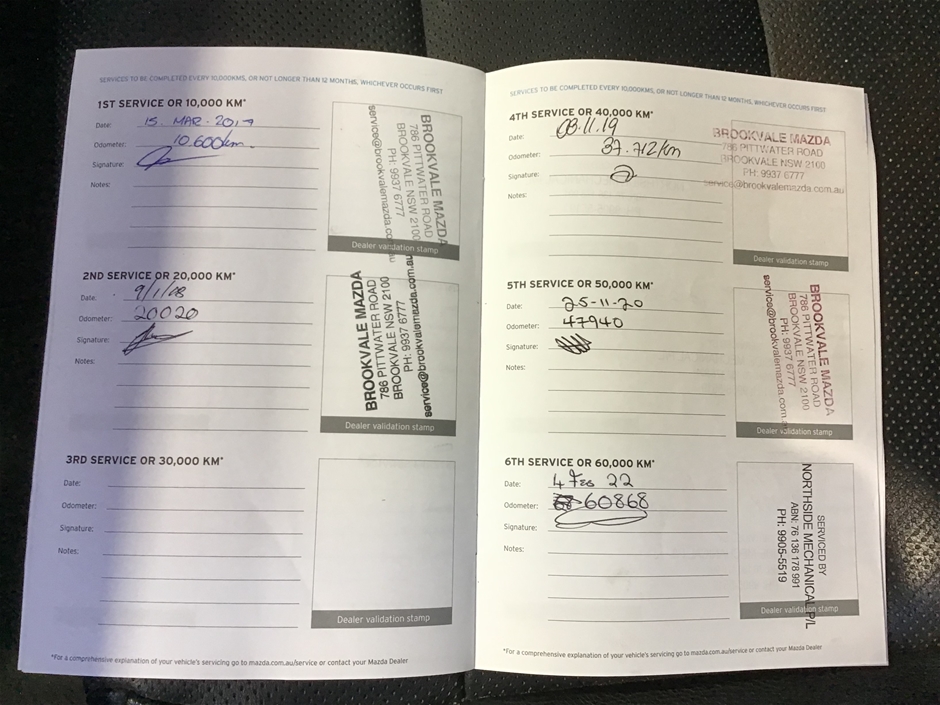 SERVICES TO BE COMPLETED EVERY 10,000KMS, OR NOT LONGER THAN 12 MONTHS, WHICHEVER OCCURS FIRST
1ST SERVICE OR 10,000 KM*
Date: 15. MAR. 201
Odometer: 10.600km.
Signature:
Notes:
BROOKVALE MAZDA
786 PITTWATER ROAD
BROOKVALE NSW 2100
PH: 9937 6777
service@brookvalemazda.co
Dealer validation stamp
2ND SERVICE OR 20,000 KM*
Date: 9/1/
Odometer: 20020
Signature:
Notes:
BROOKVALE MAZDA
786 PITTWATER ROAD
BROOKVALE NSW 2100
PH: 9937 6777
service@brookvalemazda.com.au
Dealer validation stamp
3RD SERVICE OR 30,000 KM*
Date:
Odometer:
Signature:
Notes:
Dealer validation stamp
*For a comprehensive explanation of your vehicle's servicing go to mazda.com.au/service or contact your Mazda Dealer
SERVICES TO BE COMPLETED EVERY 10,000KMS, OR NOT LONGER THAN 12 MONTHS, WHICHEVER OCCURS FIRST
4TH SERVICE OR 40,000 KM*
Date: 08.11.19
Odometer: 37.712/km
Signature:
Notes:
BROOKVALE MAZDA
786 PITTWATER ROAD
BROOKVALE NSW 2100
PH: 9937 6777
service@brookvalemazda.com.au
Dealer validation stamp
5TH SERVICE OR 50,000 KM*
Date: 25-11-20
Odometer: 47940
Signature:
Notes:
BROOKVALE MAZDA
786 PITTWATER ROAD
BROOKVALE NSW 2100
PH: 9937 6777
service@brookvalemazda.com.
Dealer validation stamp
6TH SERVICE OR 60,000 KM*
Date: 4 Feb 22
Odometer: 60868
Signature:
Notes:
SERVICED BY
NORTHSIDE MECHANICAL P/L
ABN: 76 136 178 991
PH: 9905-5519
Dealer validation stamp
*For a comprehensive explanation of your vehicle's servicing go to mazda.com.au/service or contact your Mazda Dealer